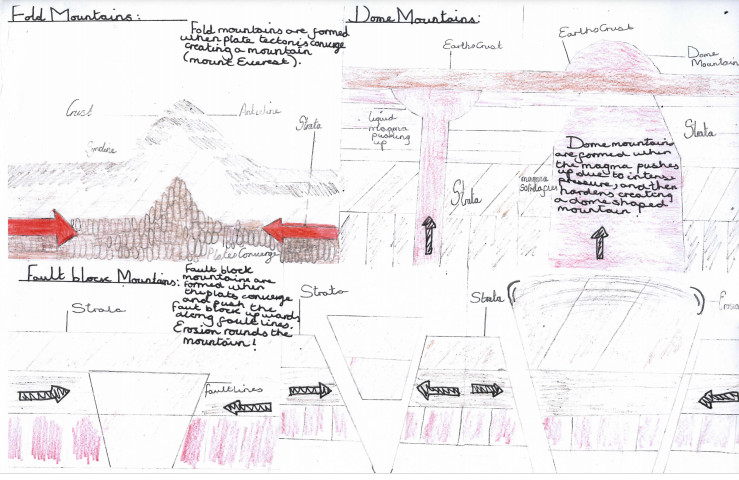 Fold Mountains:
Fold mountains are formed
when plate tectonis converge
creating a mountain
(mount Everest).
Crust
Anticline
Strata
Plates Converge
Dome Mountains:
Earths Crust
Earths Crust
Dome
Mountain
liquid
magma
pushing
up
Strata
Strata
magma
Dome mountains
are formed when
the magma pushes
up due to intens
pressure, and then
hardens creating
a dome shaped
mountain!
Fault block Mountains:
Fault block
mountains are
formed when
the plats converge
and push the
fault block upwards
along fault lines.
Erosion rounds the
mountain!
Strata
faultlines
Strata
Strata